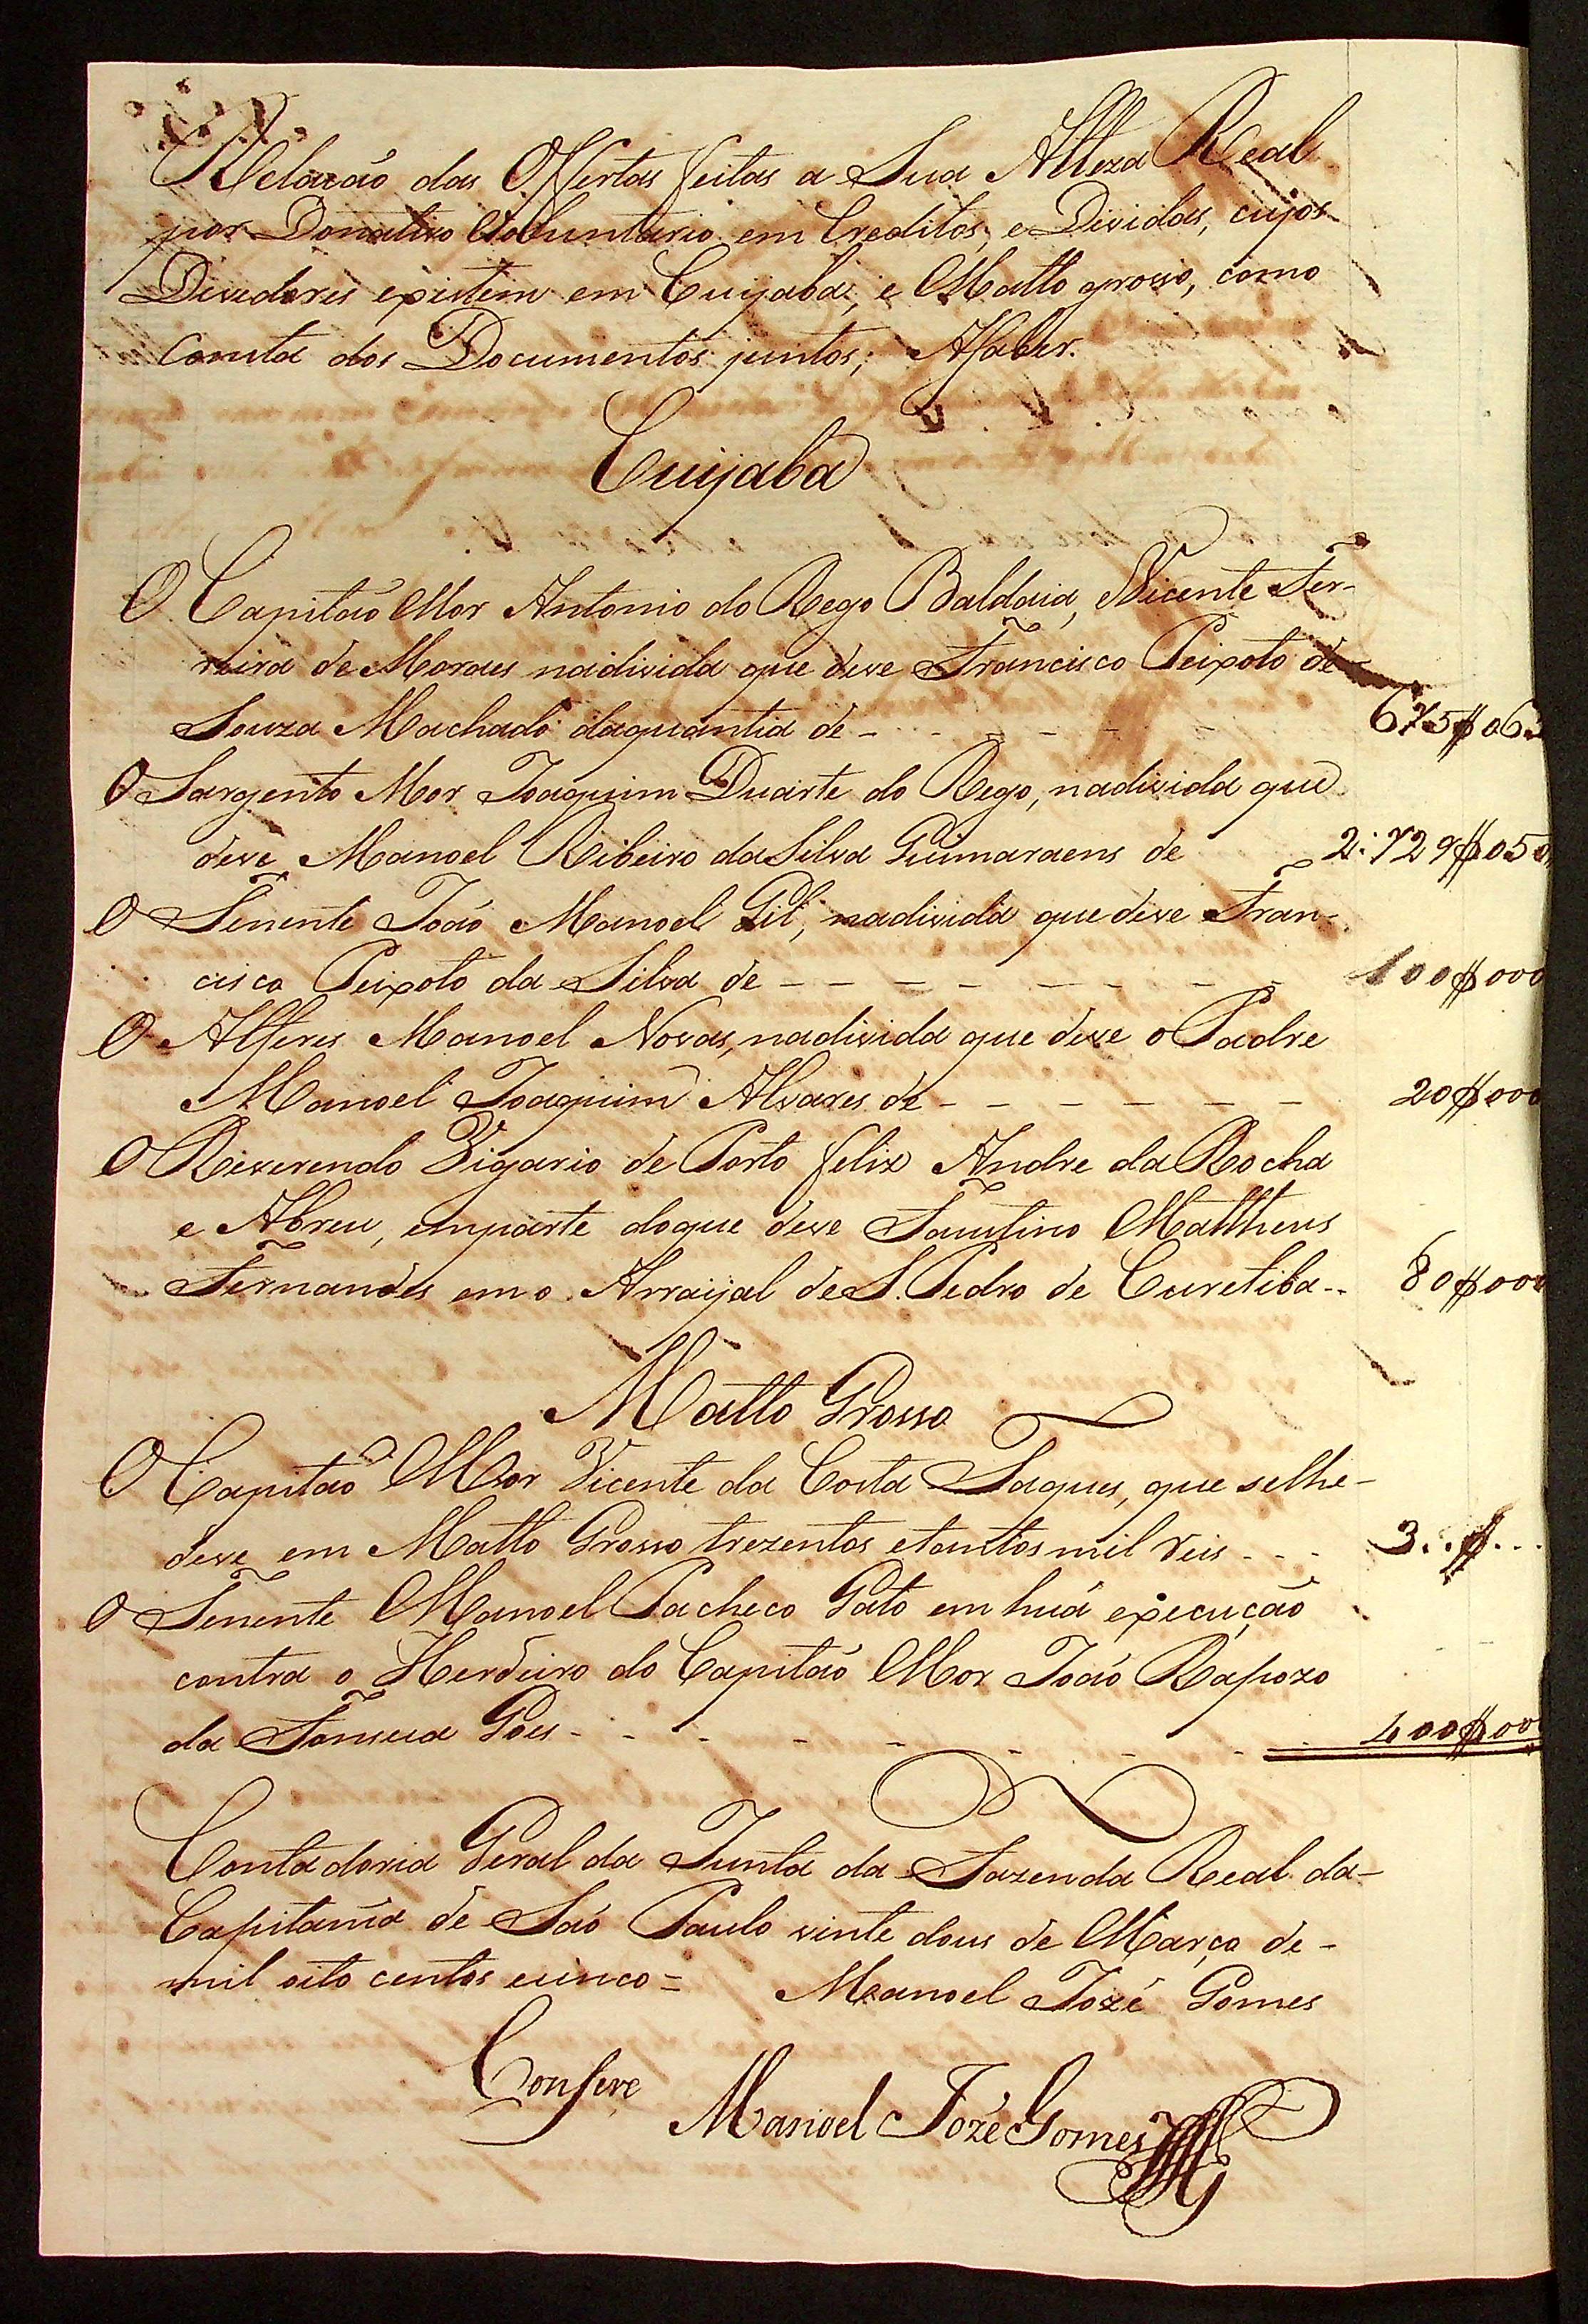 Relação das Offertas feitas a Sua Alteza Real
por Donativo Voluntario em Creditos, e Dividas, cujos
Devedores existem em Cuyabá, e Matto grosso, como
Consta dos Documentos juntos; Asaber.
Cuijaba
O Capitaõ Mor Antonio do Rego Baldaia, Vicente Fer-
reira de Moraes nadivida que deve Francisco Peixoto de
Souza Machado daquantia de - - - - - 675$06
O Sargento Mor Joaquim Duarte do Rego, nadivida que
deve Manoel Ribeiro daSilva Guimaraens de 2:729$050
O Tenente Joaõ Manoel Gil, nadivida que deve Fran-
cisco Peixoto da Silva de - - - - - - - - 100$000
O Alferes Manoel Novas, nadivida que deve o Padre
Manoel Joaquim Alvares de - - - - - - 20$000
O Reverendo Vigario de Porto feliz Andre da Rocha
e Abreu, emparte doque deve Faustino Mattheus
Fernandes em o Arraijal de S. Pedro de Curetiba-- 80$000
Matto Grosso
O Capitaõ Mor Vicente da Costa Taques, que selhe-
deve em Matto Grosso trezentos etantos mil reis - - - 3..$...
O Tenente Manoel Pacheco Gato em huá execução
contra o Herdeiro do Capitaõ Mor Joaõ Rapozo
da Fonseca Goes - - - - - - - - 400$000
Contadoria Geral da Junta da Fazenda Real da-
Capitania de Saõ Paulo vinte dous de Março de-
mil oito centos ecinco = Manoel Jozé Gomes
Confere
Manoel Jozé Gomes